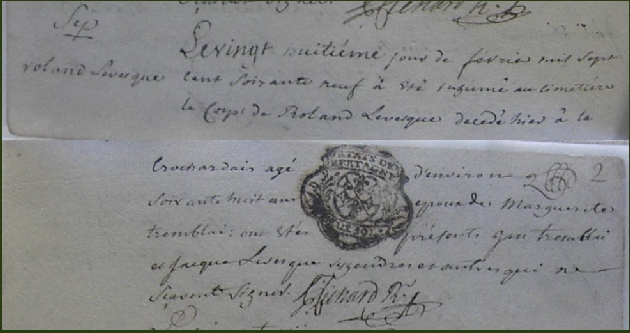 Sep
roland Levesque
Le vingt huitiéme jour de fevrier mil sept
cent soixante neuf à été inhumé au cimetiere
le Corps de Roland Levesque decedé hier à la
Crochardais agé d'environ
2
soixante huit ans epoux de Marguerite
tremblai; ont étés présents Jan tremblai
et Jacque Levesque ses gendres et autres qui ne
scavent signer